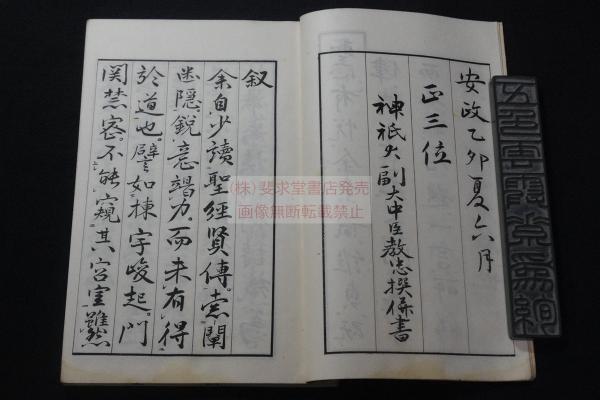 安政乙卯夏六月
正三位
神祇大副大中臣教忠撰併書
叙
余自少讀聖經賢傳索闡
幽隱鋭意竭力而未有得
於道也譬如棟宇峻起門
関禁密不能窺其宮室雖然
(株)斐求堂書店発売
画像無断転載禁止